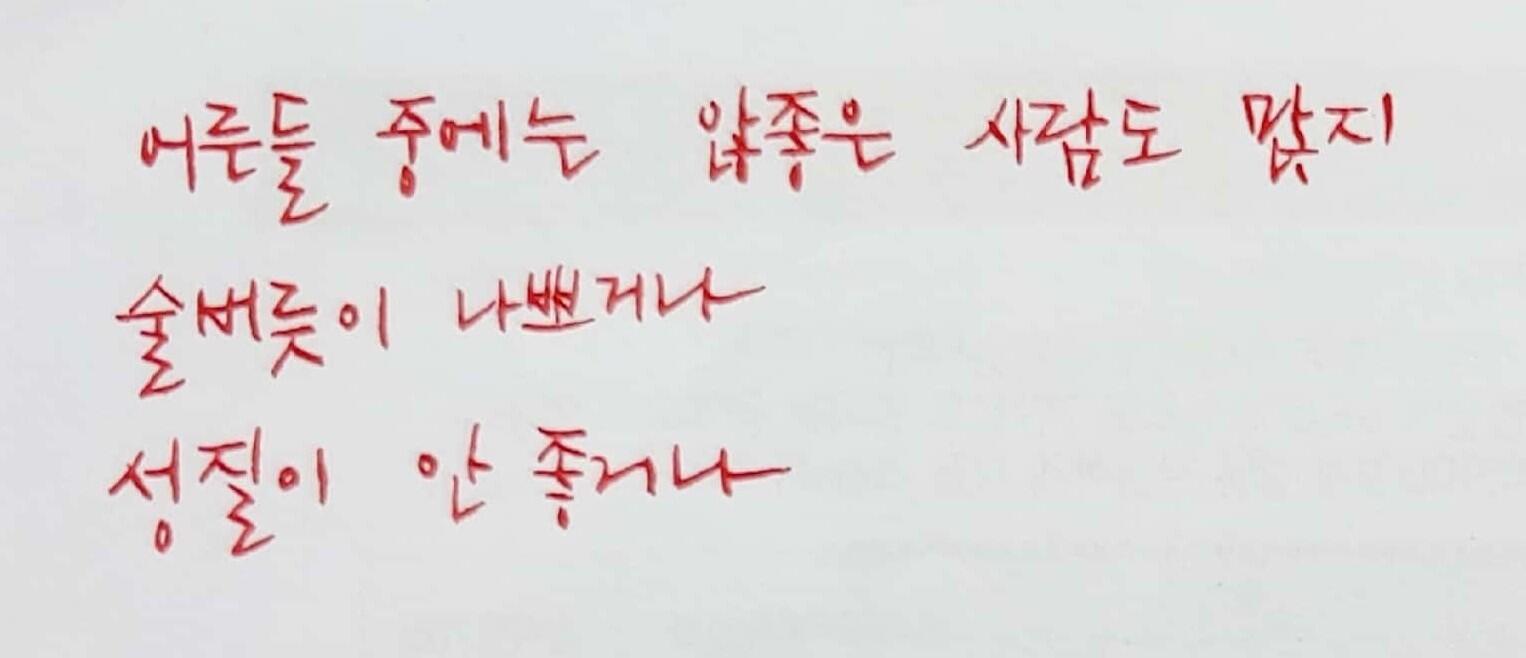 어른들 중에는 않좋은 사람도 많지
술버릇이 나쁘거나
성질이 안 좋거나